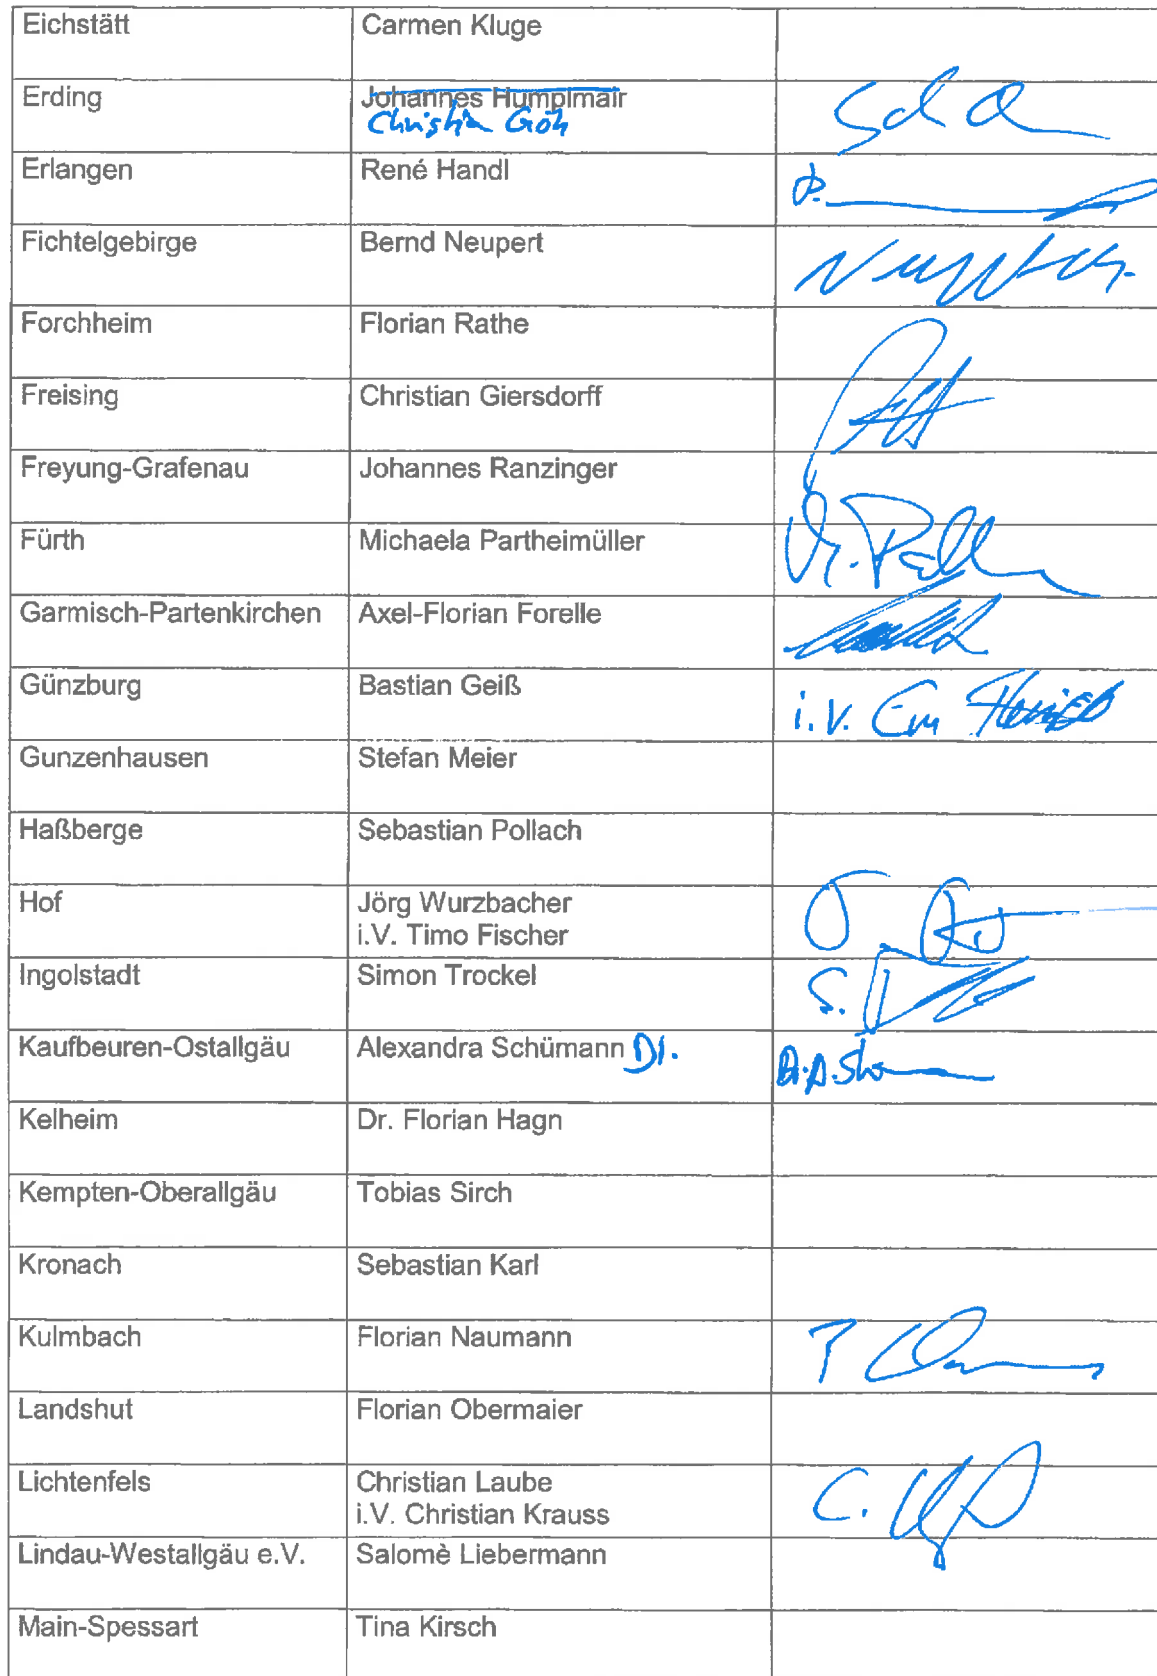 Eichstätt Carmen Kluge
Erding Johannes Humplmair
Christian
Erlangen René Handl
Fichtelgebirge Bernd Neupert
Forchheim Florian Rathe
Freising Christian Giersdorff
Freyung-Grafenau Johannes Ranzinger
Fürth Michaela Partheimüller
Garmisch-Partenkirchen Axel-Florian Forelle
Günzburg Bastian Geiß i.V.
Gunzenhausen Stefan Meier
Haßberge Sebastian Pollach
Hof Jörg Wurzbacher
i.V. Timo Fischer
Ingolstadt Simon Trockel S.
Kaufbeuren-Ostallgäu Alexandra Schümann Dr.
Kelheim Dr. Florian Hagn
Kempten-Oberallgäu Tobias Sirch
Kronach Sebastian Karl
Kulmbach Florian Naumann
Landshut Florian Obermaier
Lichtenfels Christian Laube C.
i.V. Christian Krauss
Lindau-Westallgäu e.V. Salomè Liebermann
Main-Spessart Tina Kirsch